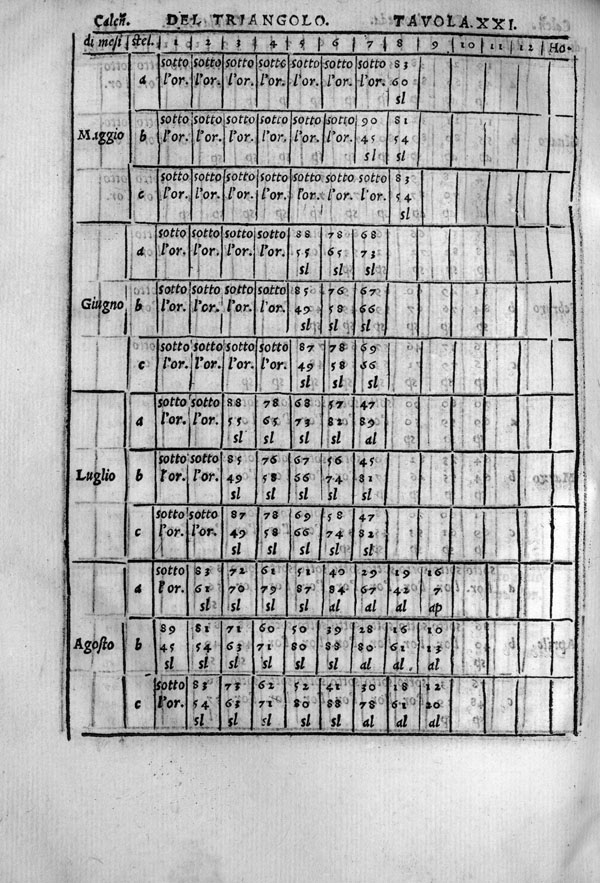 Calēn. DEL TRIANGOLO. TAVOLA.XXI.
di mesi stel. 1 2 3 4 5 6 7 8 9 10 11 12 Ho.
sotto sotto sotto sotto sotto sotto sotto 83
a l'or. l'or. l'or. l'or. l'or. l'or. l'or. 60
sl
sotto sotto sotto sotto sotto sotto 90 81
Maggio b l'or. l'or. l'or. l'or. l'or. l'or. 45 54
sl sl
sotto sotto sotto sotto sotto sotto sotto 83
c l'or. l'or. l'or. l'or. l'or. l'or. l'or. 54
sl
sotto sotto sotto sotto 88 78 68
a l'or. l'or. l'or. l'or. 55 65 73
sl sl sl
sotto sotto sotto sotto 85 76 67
Giugno b l'or. l'or. l'or. l'or. 49 58 66
sl sl sl
sotto sotto sotto sotto 87 78 69
c l'or. l'or. l'or. l'or. 49 58 66
sl sl sl
sotto sotto 88 78 68 57 47
a l'or. l'or. 55 65 73 82 89
sl sl sl sl al
sotto sotto 85 76 67 56 45
Luglio b l'or. l'or. 49 58 66 74 81
sl sl sl sl sl
sotto sotto 87 78 69 58 47
c l'or. l'or. 49 58 66 74 82
sl sl sl sl sl
sotto 83 72 61 51 40 29 19 16
a l'or. 61 70 79 87 84 67 42 7
sl sl sl sl al al al ap
89 81 71 60 50 39 28 16 10
Agosto b 45 54 63 71 80 88 80 61 13
sl sl sl sl sl sl al al. al
sotto 83 73 62 52 41 30 18 12
c l'or. 54 63 71 80 88 78 61 20
sl sl sl sl sl al al al